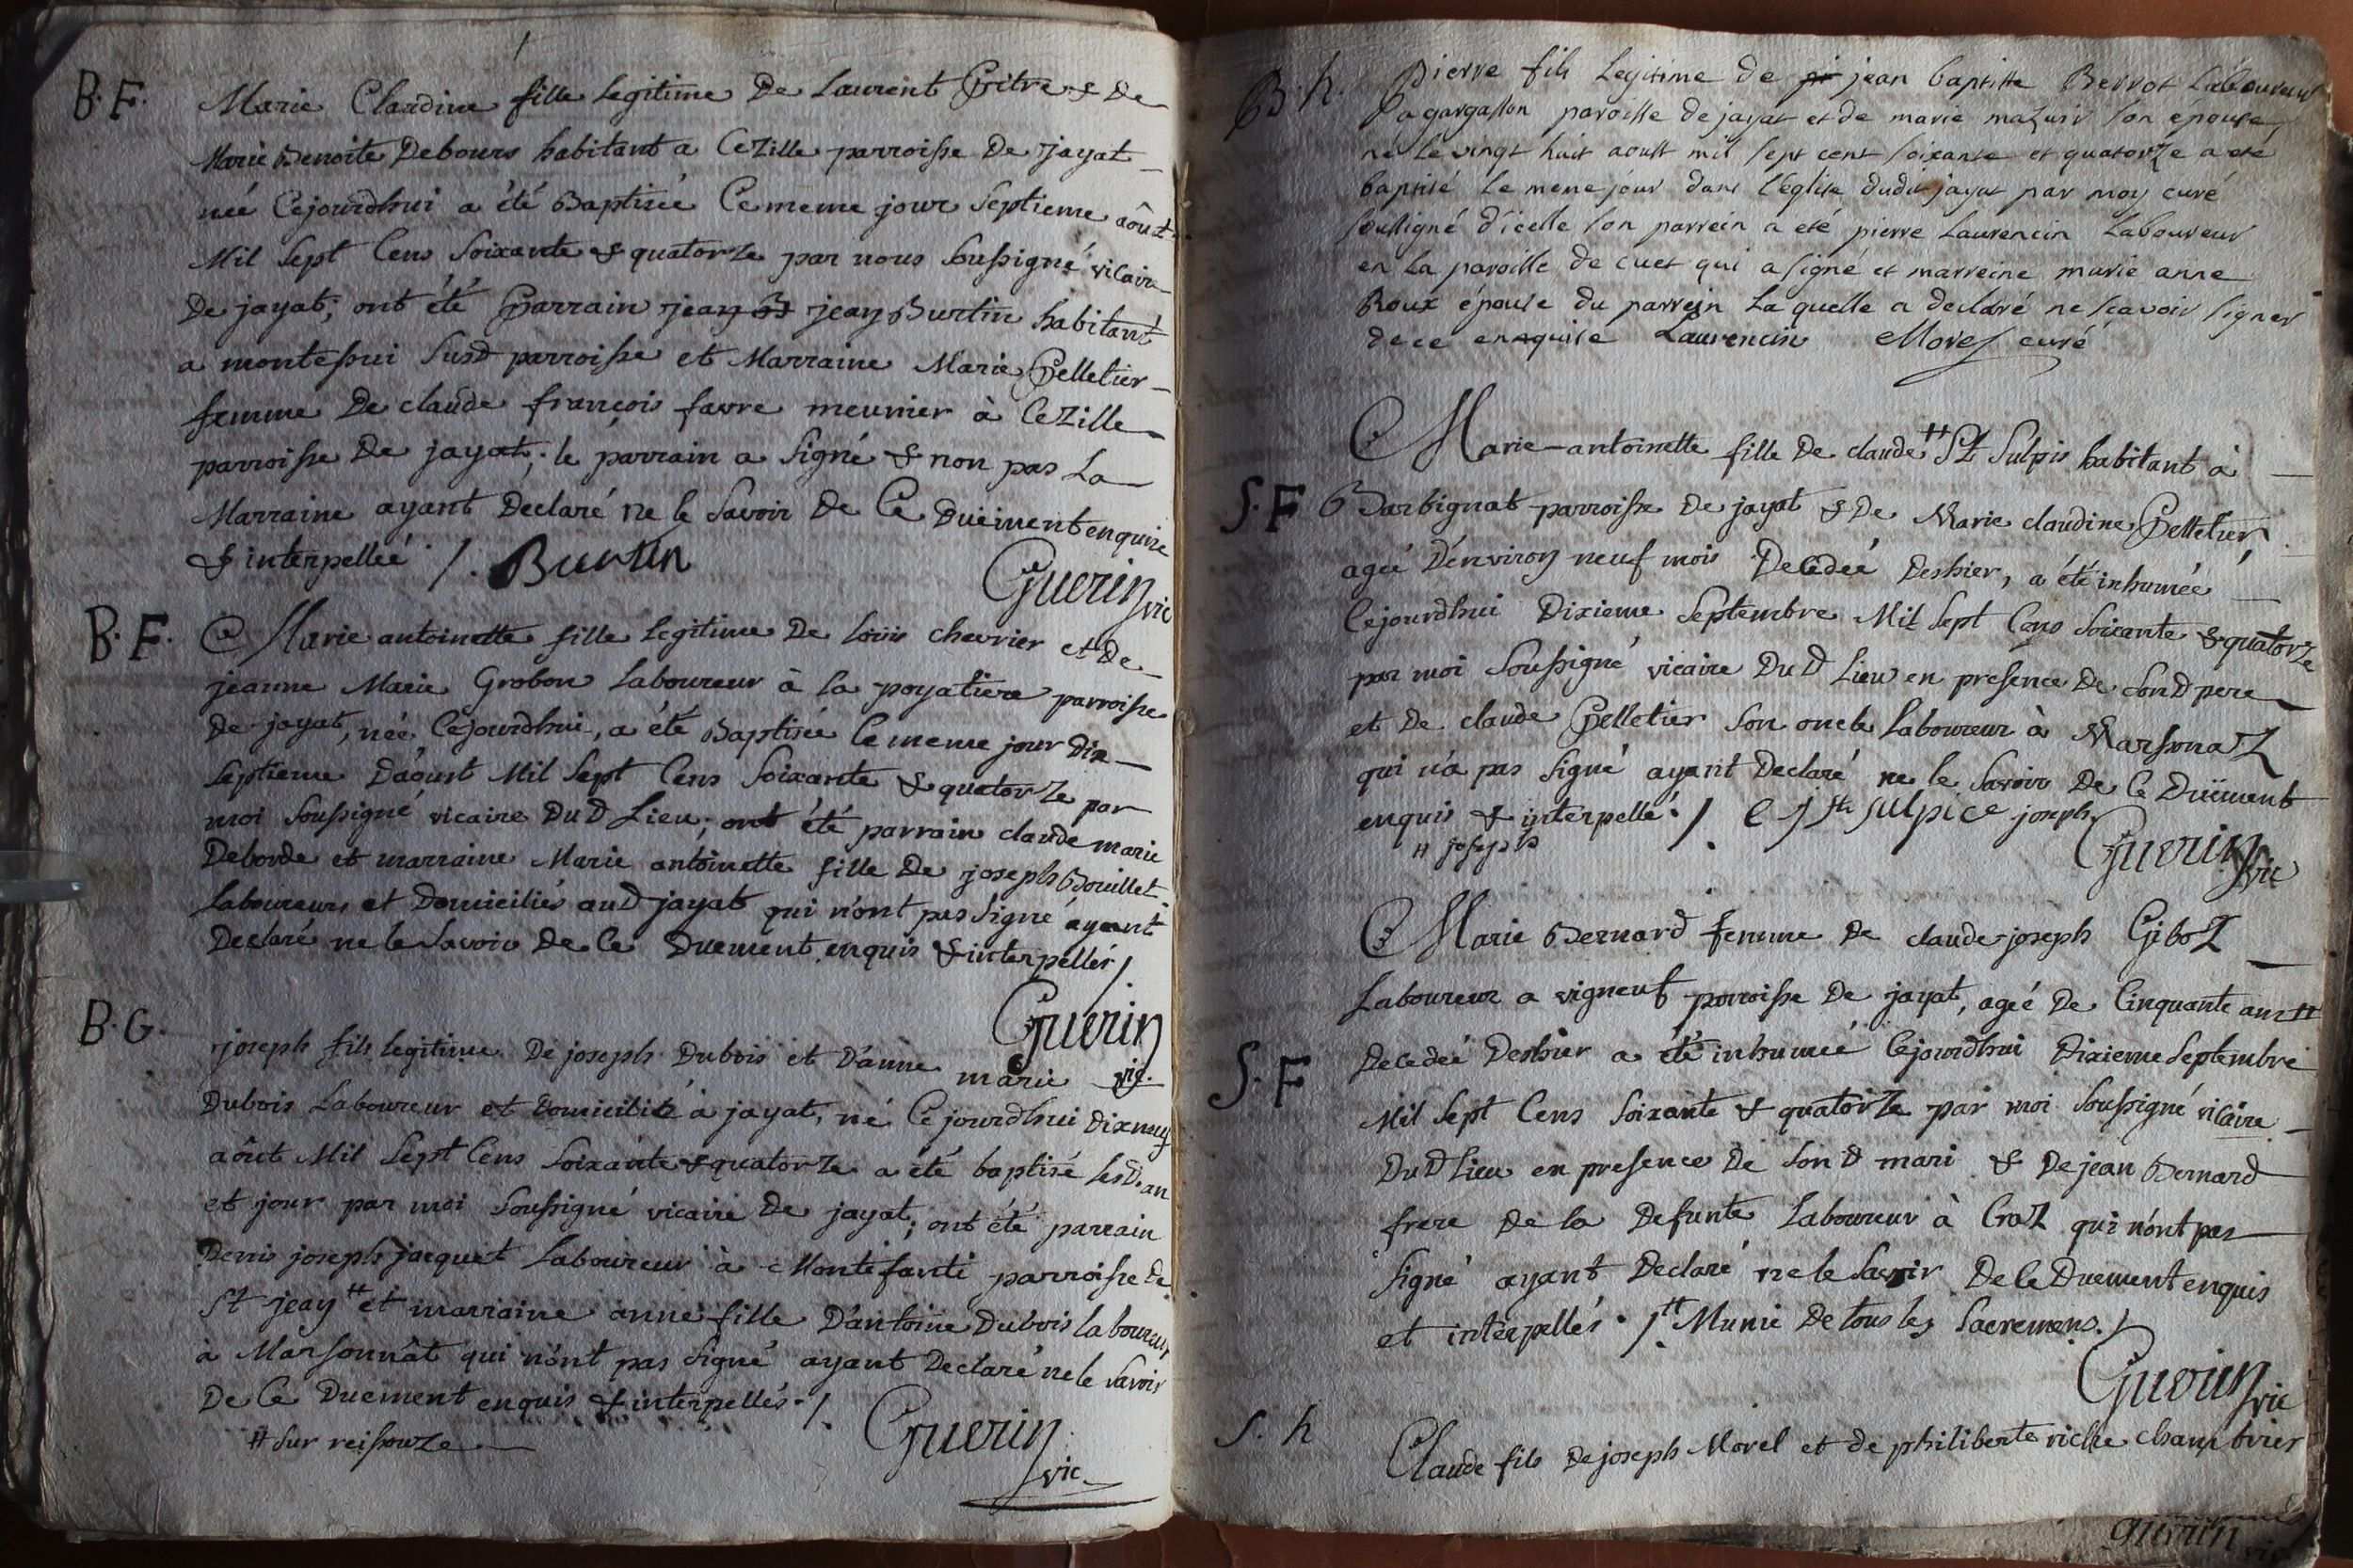 B. F.
Marie Claudine fille legitime De Laurent Pitre & De
Marie Benoite Debours habitant a Cezille parroisse De jayat
née Cejourdhui a été Baptisée Ce meme jour Septieme aôut
Mil Sept Cens Soixante & quatorze par nous Soussigné vicaire
De jayat; ont été Parrain jean B jean Burtin habitant
a montessui Susd parroisse et Marraine Marie Pelletier
femme De claude françois favre meunier à Cezille
parroisse De jayat; le parrain a Signé & non pas La
Marraine ayant Declaré ne le Savoir De Ce Duëment enquise
& interpellée /. Burtin
Guerin vic
B. F.
Marie antoinette fille legitime De Loüis chevrier et De
jeanne Marie Grobon Laboureur à la poyatiere parroisse
De jayat, née Cejourdhui, a été Baptisée le meme jour Dix
Septieme D'aoust Mil Sept Cens Soixante & quatorze par
moi Soussigné vicaire DuD Lieu; ont été parrain claude marie
Deborde et marraine Marie antoinette fille De joseph Bouillet
Laboureurs et Domiciliés auD jayat qui n'ont pas Signé ayant
Declaré ne le Savoir De Ce Duement enquis & interpellés /
Guerin
vic.
B. G.
joseph fils legitime De joseph Dubois et D'anne marie
Dubois Laboureur et Domicilié à jayat, né Cejourdhui Dixneuf
aôut Mil Sept Cens Soixante & quatorze a été baptisé lesD. an
et jour par moi Soussigné vicaire De jayat; ont été parrain
Denis joseph jacquet Laboureur à Montefanti parroisse De
St jean # et marraine anne fille D'antoine Dubois laboureur
à Marsonnât qui n'ont pas Signé ayant Declaré ne le Savoir
De Ce Duement enquis & interpellés. /.
# Sur reisouze
Guerin
vic
B. h.
Pierre fils Legitime de jean baptiste Berrot Laboureur
a gargasson paroisse de jayat et de marie mazuir son épouse,
né le vingt huit aoust mil sept cent soixante et quatorze a eté
baptisé le meme jour dans l'eglise dudit jayat par moy curé
soussigné d'icelle son parrein a eté pierre Laurencin Laboureur
en la paroisse de cuet qui a signé et marreine marie anne
Roux épouse du parrein Laquelle a declaré ne scavoir signer
de ce enquise Laurencin Morel curé
S. F
Marie-antoinette fille De claude # St Sulpis habitant à
Barbignat parroisse De jayat & De Marie claudine Pelletier
agée D'environ neuf mois Decedée Deshier, a été inhumée
Cejourdhui Dixieme Septembre Mil Sept Cens Soixante & quatorze
par moi Soussigné vicaire DuD Lieu en presence De SonD pere
et De claude Pelletier Son oncle Laboureur à Marsonaz
qui n'a pas Signé ayant Declaré ne le Savoir De Ce Duëment
enquis & interpellé. /. C j st sulpice joseph
# joseph
Guerin vic
S. F
Marie Bernard femme De claude joseph Giboz
Laboureur a vigneuf parroisse De jayat, agée De Cinquante ans #
Decedée Deshier a été inhumée Cejourdhui Dixieme Septembre
Mil Sept Cens Soixante & quatorze par moi Soussigné vicaire
DuD Lieu en presence De SonD mari & De jean Bernard
frere De la Defunte Laboureur à Craz qui n'ont pas
Signé ayant Declaré ne le Savoir De Ce Duement enquis
et interpellés. /. # Munie De tous les Sacremens. /
Guerin vic
S. h
Claude fils De joseph Morel et de philiberte viche chambrier
guerin